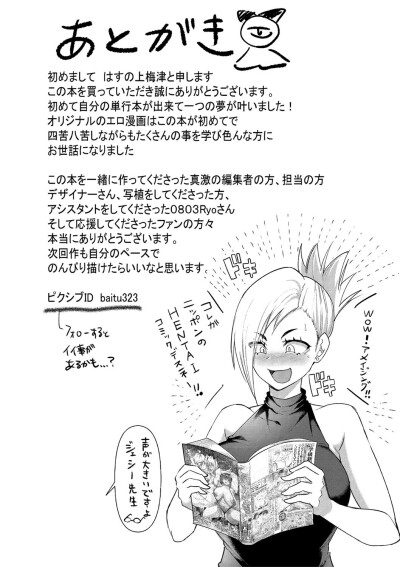 あとがき
初めまして はすの上梅津と申します
この本を買っていただき誠にありがとうございます。
初めて自分の単行本が出来て一つの夢が叶いました！
オリジナルのエロ漫画はこの本が初めてで
四苦八苦しながらもたくさんの事を学び色んな方に
お世話になりました
この本を一緒に作ってくださった真激の編集者の方、担当の方
デザイナーさん、写植をしてくださった方、
アシスタントをしてくださった0803Ryoさん
そして応援してくださったファンの方々
本当にありがとうございます。
次回作も自分のペースで
のんびり描けたらいいなと思います。
ピクシブID baitu323
フォローすると
イイ事が
あるかも…？
WOW!アメイジング!!
コレが
ニッポンの
HENTAI
コミックデスネー!!
ドキ
ドキ
声が大きいですよ
ジェシー先生